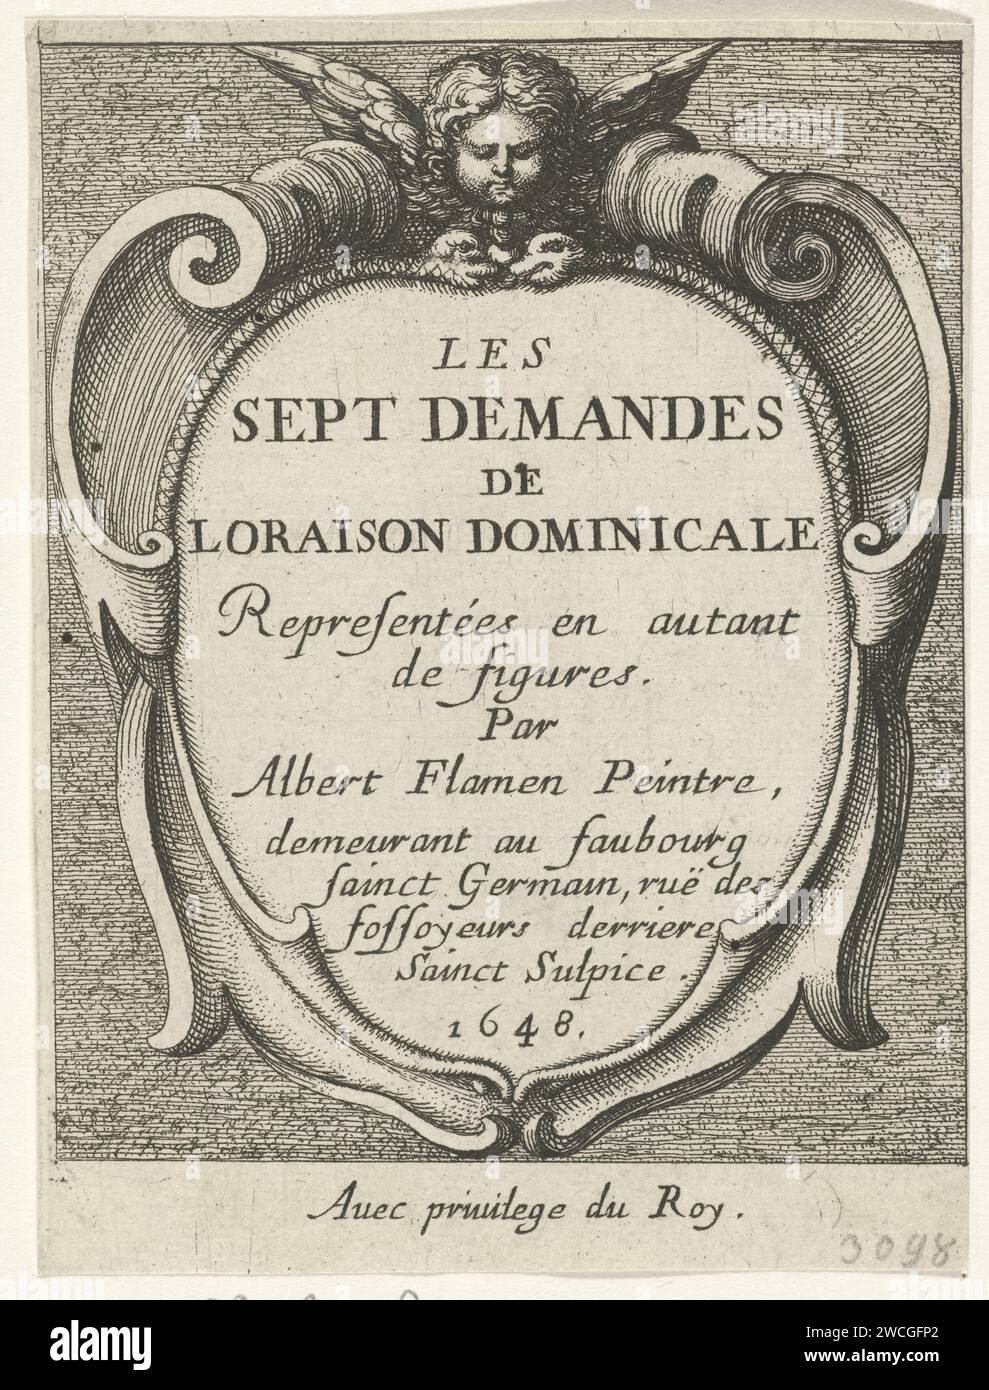 LES
SEPT DEMANDES
DE
LORAISON DOMINICALE
Repreſentées en autant
de figures.
Par
Albert Flamen Peintre,
demeurant au faubourg
ſainct Germain, ruë des
foſſoyeurs derriere
Sainct Sulpice.
1648.
Auec priuilege du Roy.
3098
alamy
Image ID: 2WCGFP2
www.alamy.com